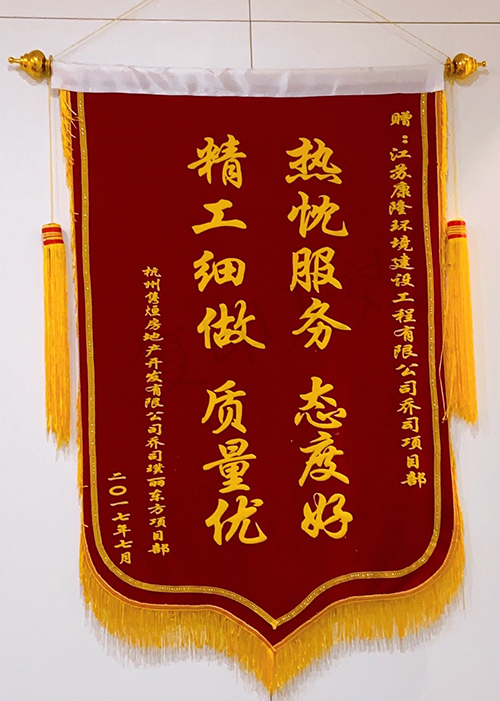 赠：江苏康隆环境建设工程有限公司乔司项目部
热忱服务 态度好
精工细做 质量优
杭州隽烜房地产开发有限公司乔司璞丽东方项目部
二〇一七年七月